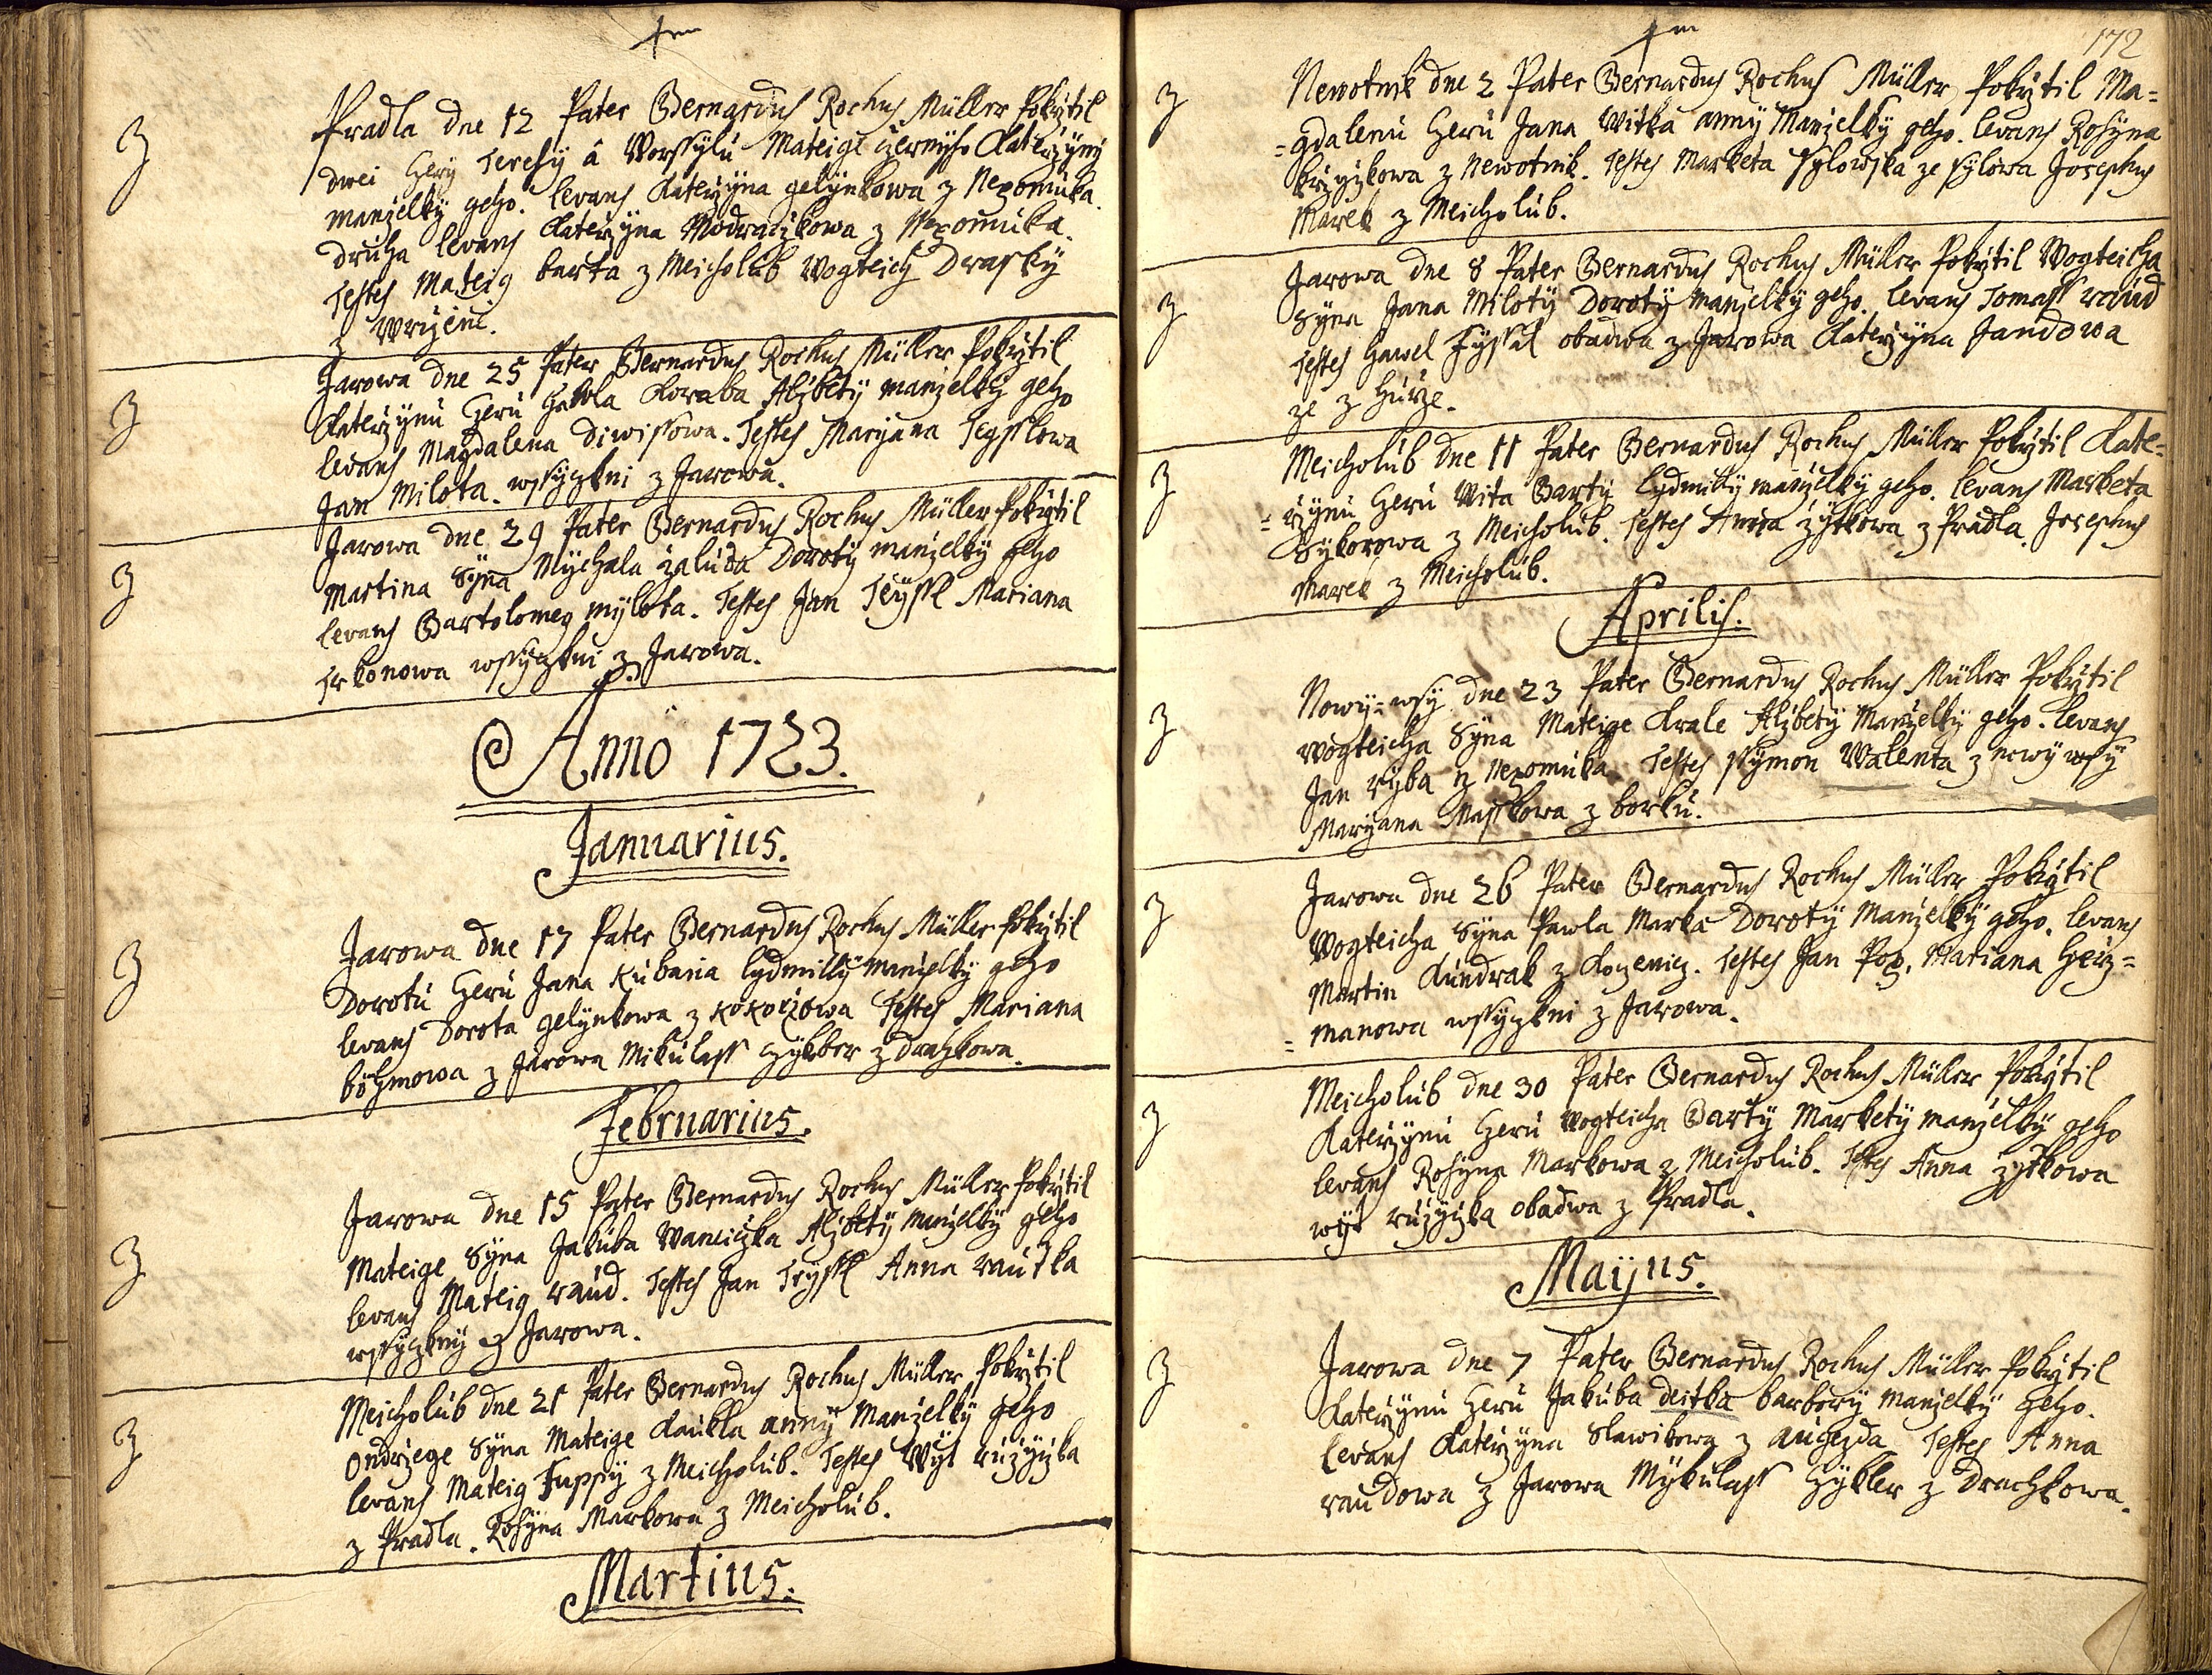 Pradla dne 12 Pater Bernardus Rochus Müller Pokrztil
dwei Czery Teresy a Worssylu Mateige Czernyho Katerzyny
manzelky geho. levans Katerzyna gelynkowa z Nepomuka.
druha levans Katerzyna Modraczkowa z Nepomuka.
Testes Mateig barta z Meicholub Wogteich Drasky
z Wrczene.
Z
Jarowa dne 25 Pater Bernardus Rochus Müller Pokrztil
Katerzynu Czeru Gakola Koraba Alzbety manzelky geho
levans Magdalena Diwissowa. Testes Maryana
Jan Milota. wssyczkni z Jarowa.
Z
Jarowa dne 29 Pater Bernardus Rochus Müller Pokrztil
Martina Syna Mychala zaluda Doroty manzelky geho
levans Bartolomeg mylota. Testes Jan Mariana
wssyczkni z Jarowa.
Z
Anno 1723.
Januarius.
Jarowa dne 17 Pater Bernardus Rochus Müller Pokrztil
Dorotu Czeru Jana Kubana lydmilly manzelky geho
levans Dorota gelynkowa z Kokorzowa Testes Mariana
böhmowa z Jarowa Mikulass z Drachkowa.
Z
Februarius.
Jarowa dne 15 Pater Bernardus Rochus Müller Pokrztil
Mateige Syna Jakuba Wanciczka Alzbety manzelky geho
levans Mateig raud. Testes Jan Anna rautka
wssyczkny z Jarowa.
Z
Meicholub dne 21 Pater Bernardus Rochus Müller Pokrztil
Ondrzege Syna Mateige Kaukla anny Manzelky geho
levans Mateig Fuppsy z Meicholub. Testes Wyt ruzyczka
z Pradla. Rosyna Markowa z Meicholub.
Z
Martius.
172
Newotnik dne 2 Pater Bernardus Rochus Müller Pokrztil Ma=
=gdalenu Czeru Jana Witka anny Manzelky geho. levans Rosyna
z Newotnik. Testes Marketa Sylowska ze sylowa Josephus
Marek z Meicholub.
Z
Jarowa dne 8 Pater Bernardus Rochus Müller Pokrztil Wogteicha
Syna Jana Miloty Doroty manzelky geho. levans Tomass raud
Testes Hawel obadwa z Jarowa Katerzyna Jandowa
ze z Hurze.
Z
Meicholub dne 11 Pater Bernardus Rochus Müller Pokrztil Kate=
=rzynu Czeru Wita Barty lydmilly manzelky geho. levans Marketa
Sykorowa z Meicholub. Testes Anna zytkowa z Pradla. Josephus
Marek z Meicholub.
Z
Aprilis.
Nowy=wsy dne 23 Pater Bernardus Rochus Müller Pokrztil
Wogteicha Syna Mateige Krale Alzbety Manzelky geho. levans
Jan ryba z Nepomuka. Testes Ssymon Walenta z nowy wsy
Maryana Masskowa z borku.
Z
Jarowa dne 26 Pater Bernardus Rochus Müller Pokrztil
Wogteicha Syna Pawla Marka Doroty Manzelky geho. levans
Martin Kundrak z Kozenicz. Testes Jan Pop, Mariana Herz=
=manowa wssyczkni z Jarowa.
Z
Meicholub dne 30 Pater Bernardus Rochus Müller Pokrztil
Katerzynu Czeru Wogteicha Barty Markety manzelky geho
levans Rosyna Markowa z Meicholub. Testes Anna zytkowa
wyt ruzyczka obadwa z Pradla.
Z
Maijus.
Jarowa dne 7 Pater Bernardus Rochus Müller Pokrztil
Katerzynu Czeru Jakuba deitka barbory manzelky geho.
levans Katerzyna Slawikowa z augezda Testes Anna
raudowa z Jarowa Mykulass z Drachkowa.
Z